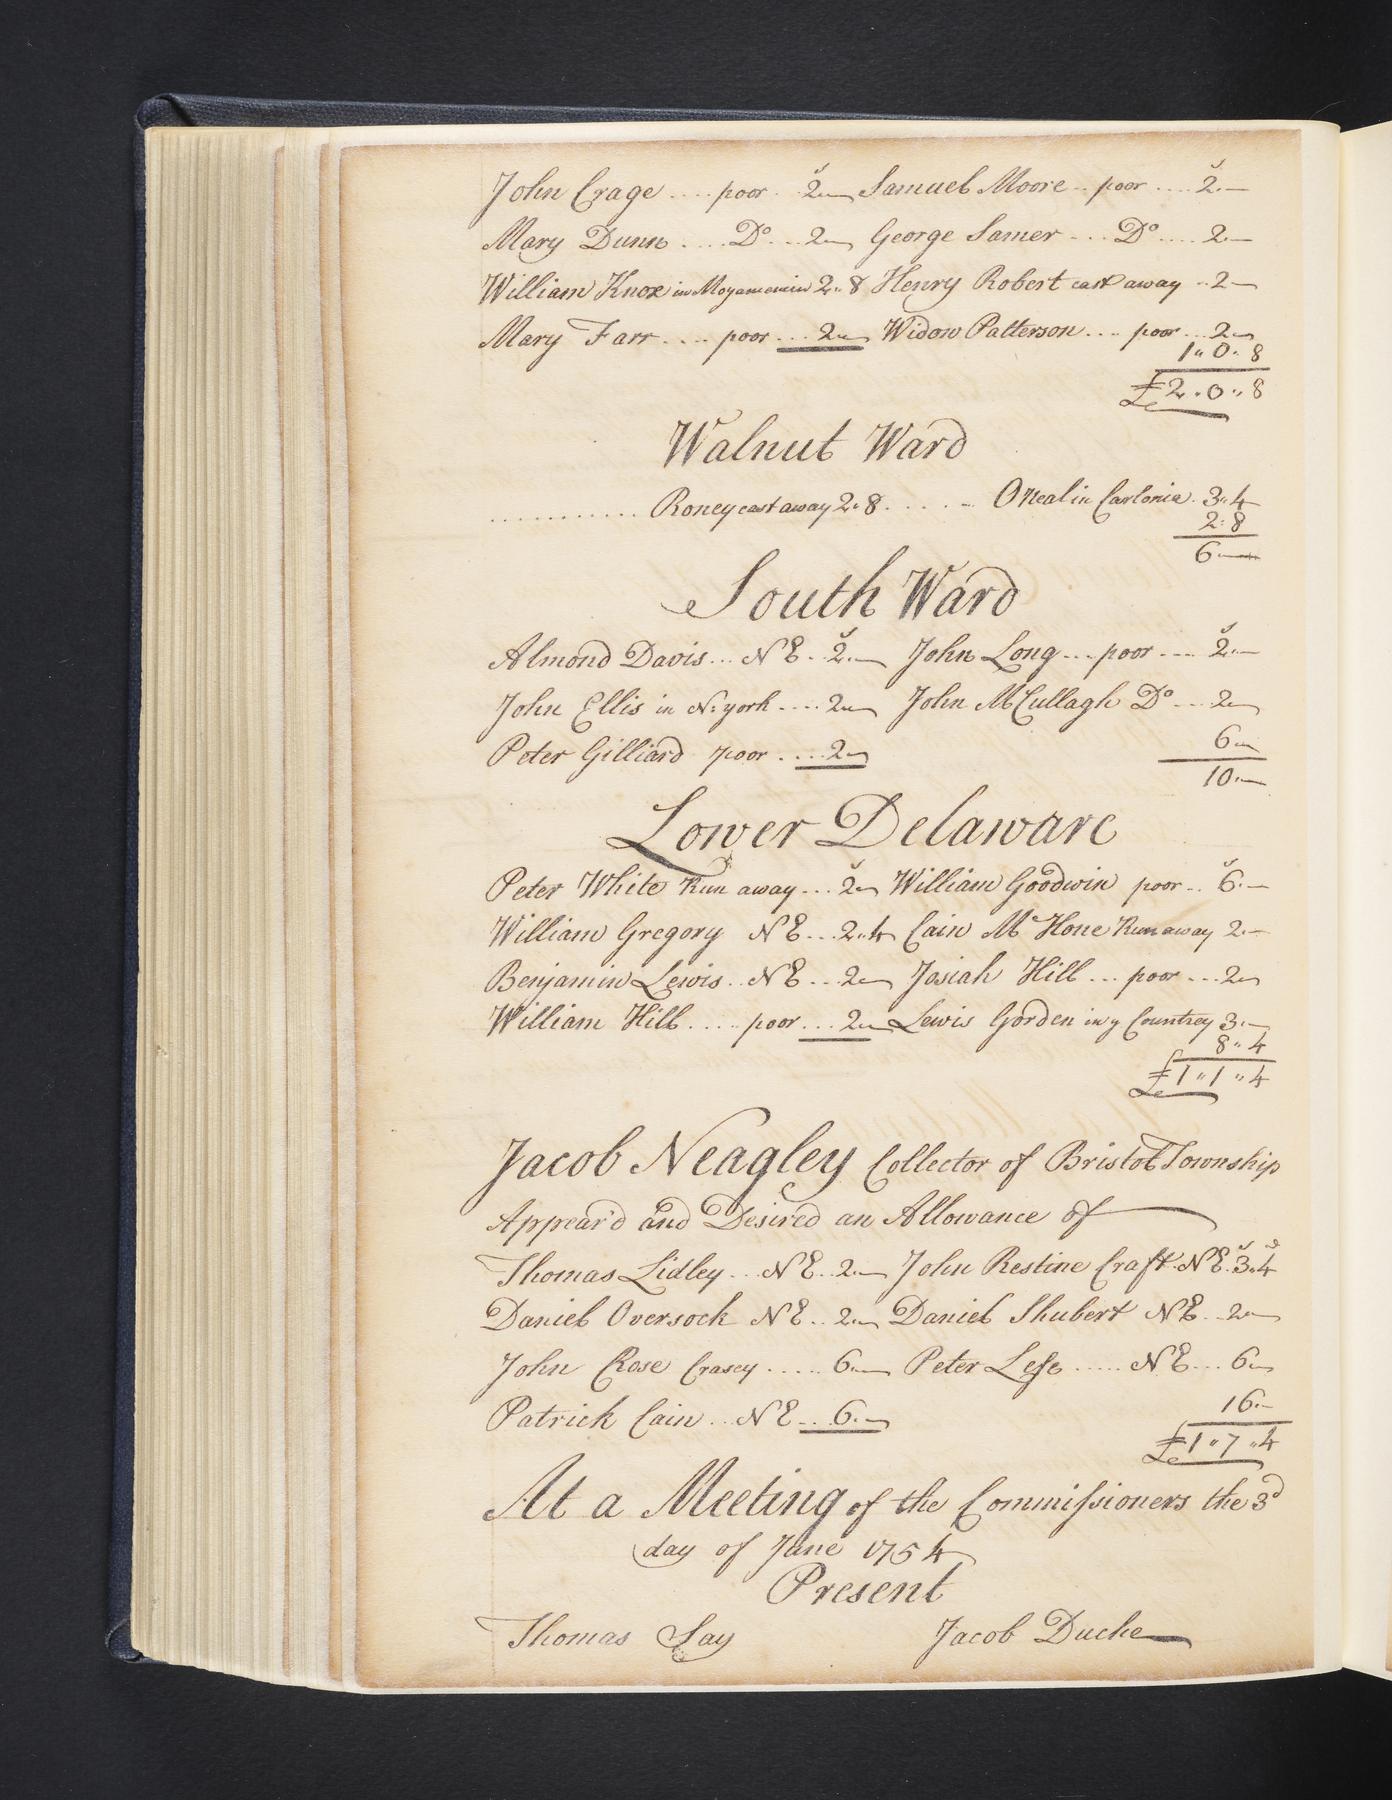 John Crage .... poor .. 2.— Samuel Moore .. poor .... 2.—
Mary Dunn .... Do ... 2.— George Samer ... Do .... 2.—
William Knox in Moyamemin 2.. 8 Henry Robert cast away .. 2—
Mary Farr .... poor ... 2.— Widow Patterson ... poor ... 2.—
1.. 0.. 8
£2.. 0.. 8
Walnut Ward
............ Roney cast away 2.. 8 ..... Oneal in Carlonia . 3.. 4
2.. 8
6.—
South Ward
Almond Davis ... N E .. 2.— John Long ... poor ... 2.—
John Ellis in N: york .... 2.— John McCullagh Do ... 2.—
Peter Gilliard poor .... 2.—
6.—
10.—
Lower Delaware
Peter White Run away ... 2.— William Goodwin poor .. 6.—
William Gregory N E ... 2.. 4 Cain Mc Hone Run away 2.—
Benjamin Lewis .. N E ... 2.— Josiah Hill ... poor ... 2.—
William Hill ..... poor ... 2.— Lewis Gorden in y Countrey 3.—
8.. 4
£1.. 1.. 4
Jacob Neagley Collector of Bristol Township
Appear'd and Desired an Allowance of
Thomas Lidley ... N E .. 2.— John Restine Craft . N E . 3.. 4
Daniel Oversock N E .. 2.— Daniel Shubert N E .. 2.—
John Rose Crasey ..... 6.— Peter Lese ..... N E ... 6.—
Patrick Cain ... N E ... 6.—
16.—
£1.. 7.. 4
At a Meeting of the Commissioners the 3d
day of June 1754
Present
Thomas Say Jacob Duche